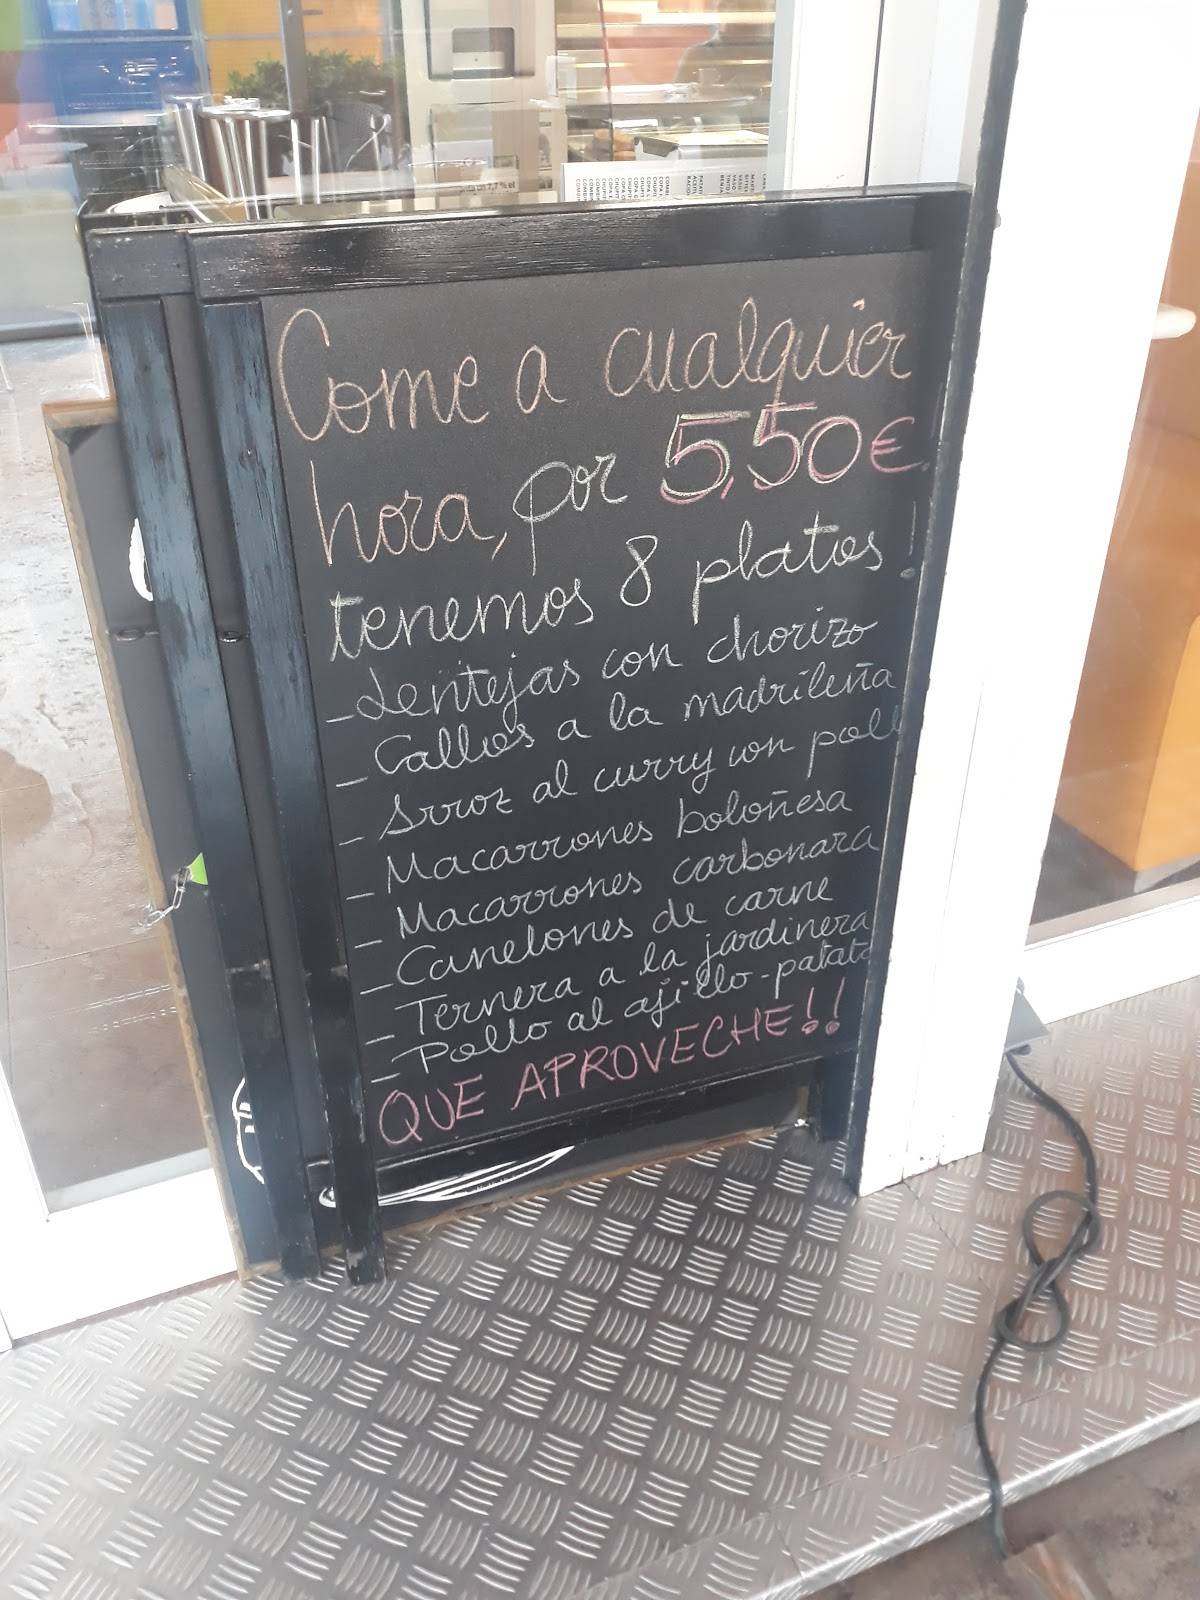 Come a cualquier
hora, por 5,50€!
tenemos 8 platos!
- Lentejas con chorizo
- Callos a la madrileña
- Arroz al curry con poll
- Macarrones boloñesa
- Macarrones carbonara
- Canelones de carne
- Ternera a la jardinera
- Pollo al ajillo - patata
QUE APROVECHE!!